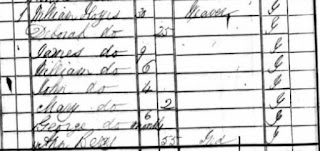 1 William Hayes 30 Weaver I
Deborah do 25 I
James do 9 I
William do 6 I
John do 4 I
Mary do 2 I
George do 6 months I
John 55 Ind I